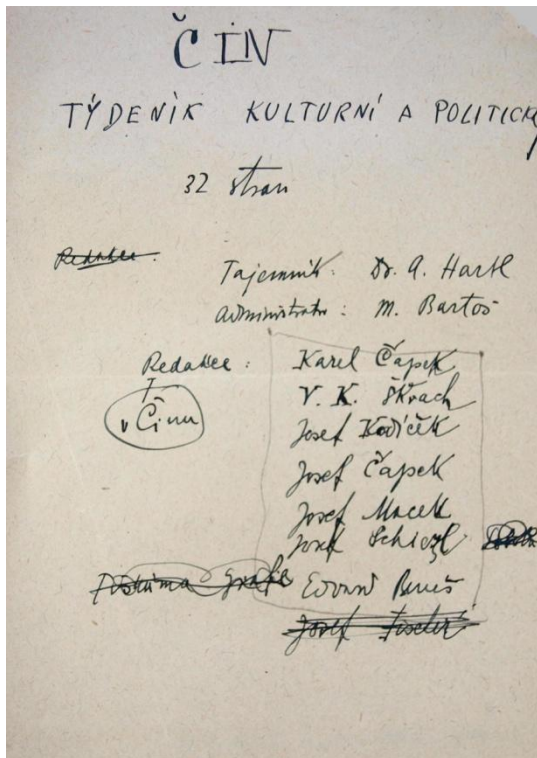 ČIN
TÝDENÍK KULTURNÍ A POLITICKÝ
32 stran
Redakce.
Tajemník: Dr. A. Hartl
Administrator: M. Bartoš
Redakce: Karel Čapek
V. K. Škrach
v Činu
Josef Kodíček
Josef Čapek
Josef Macek
Josef Schieszl
Edvard Beneš
Josef Fischer